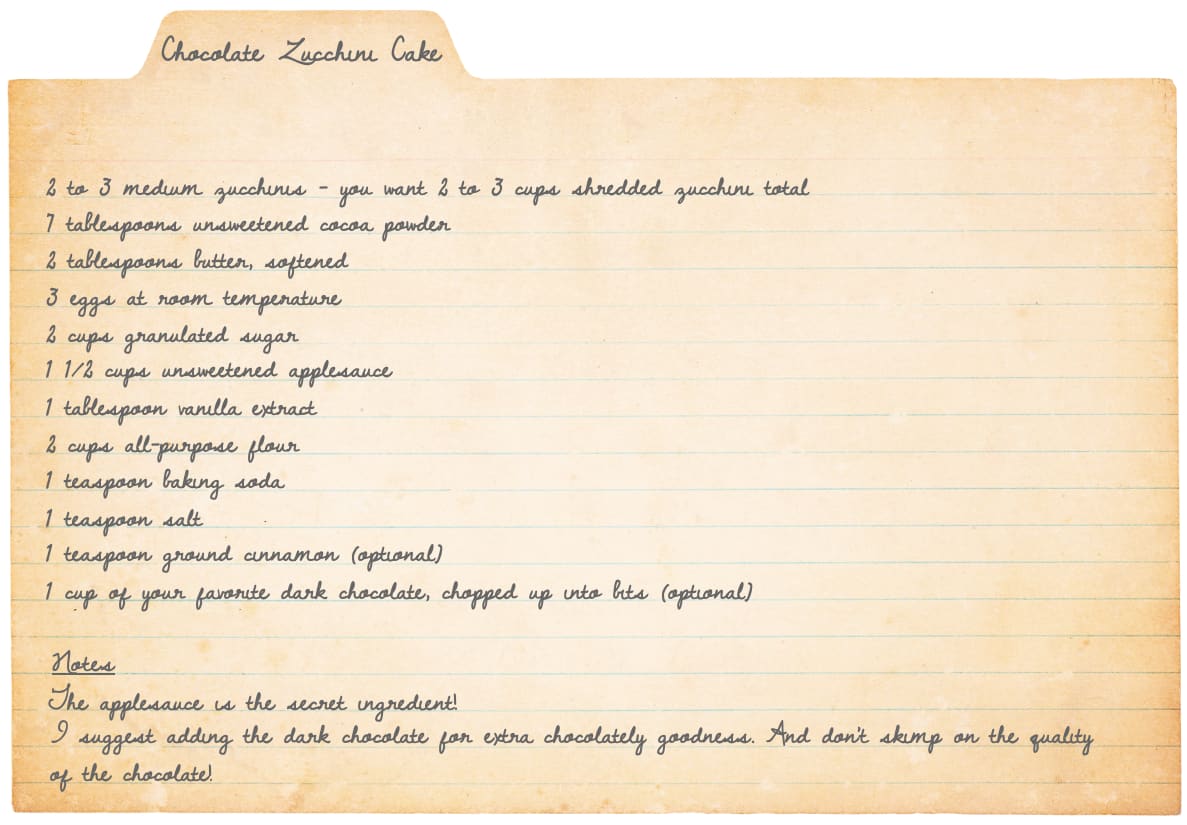 Chocolate Zucchini Cake
2 to 3 medium zucchinis - you want 2 to 3 cups shredded zucchini total
7 tablespoons unsweetened cocoa powder
2 tablespoons butter, softened
3 eggs at room temperature
2 cups granulated sugar
1 1/2 cups unsweetened applesauce
1 tablespoon vanilla extract
2 cups all-purpose flour
1 teaspoon baking soda
1 teaspoon salt
1 teaspoon ground cinnamon (optional)
1 cup of your favorite dark chocolate, chopped up into bits (optional)
Notes
The applesauce is the secret ingredient!
I suggest adding the dark chocolate for extra chocolately goodness. And don't skimp on the quality
of the chocolate!